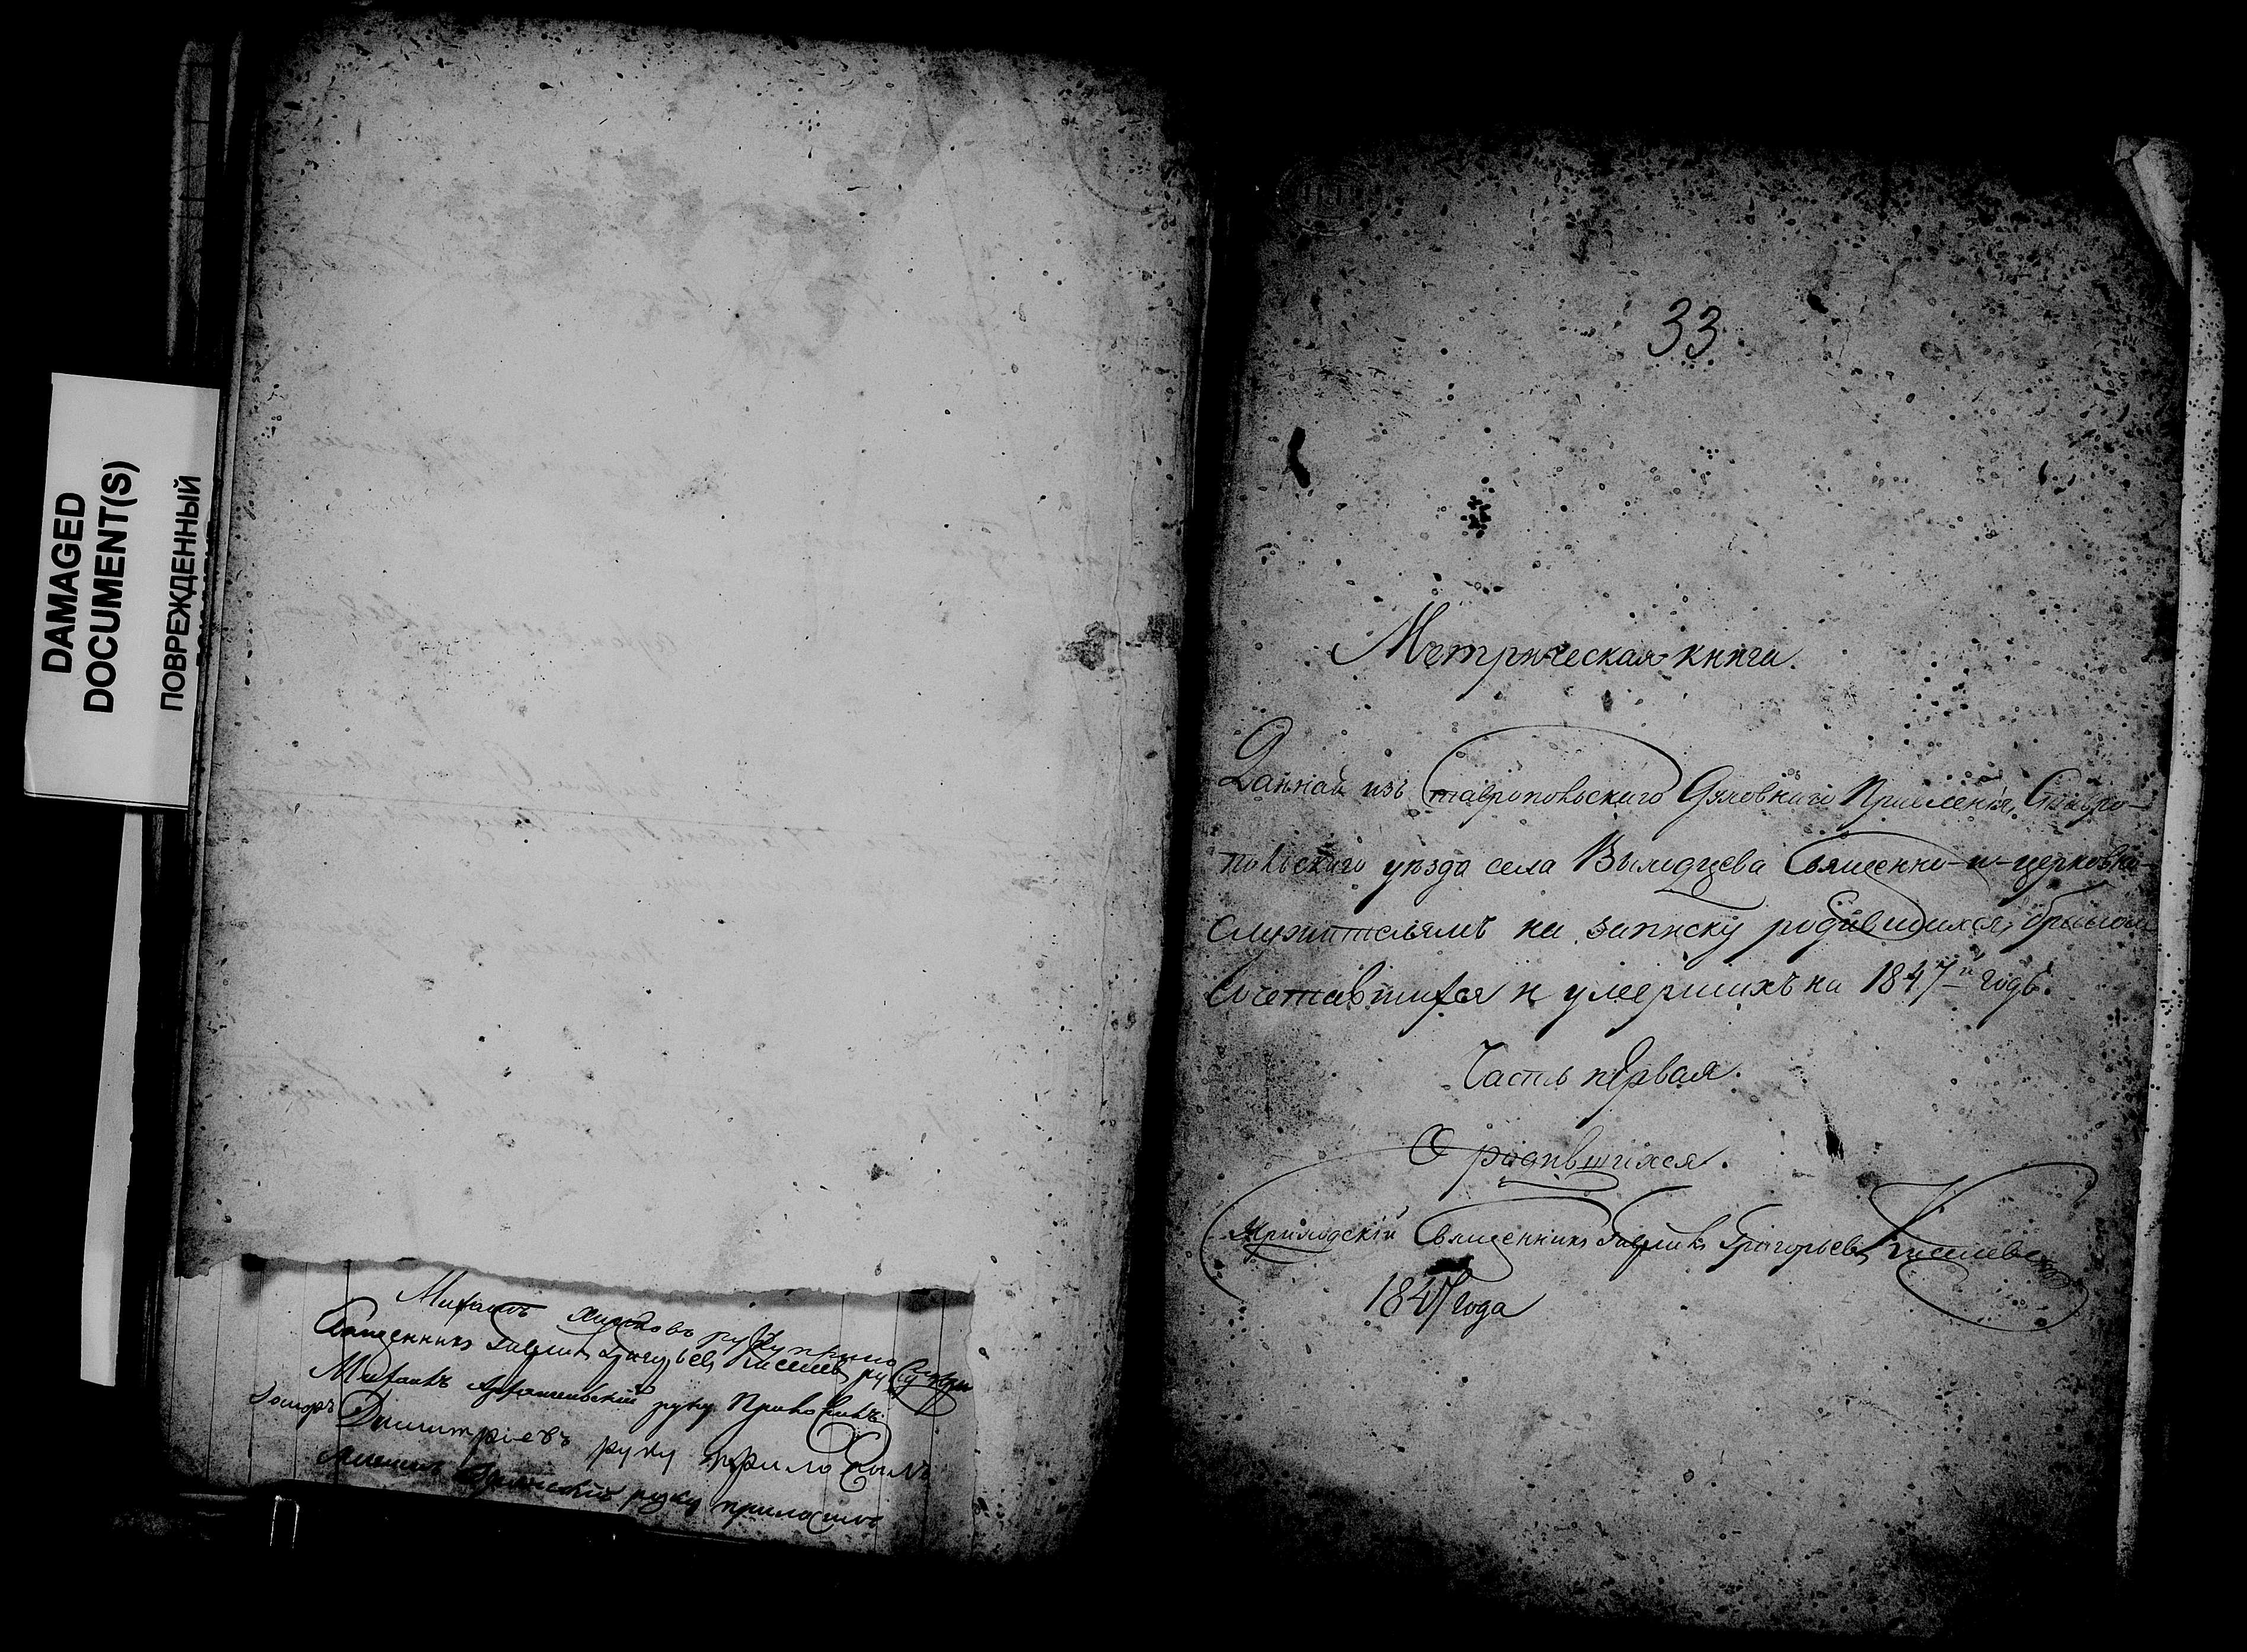 DAMAGED
DOCUMENT(S)
ПОВРЕЖДЕННЫЙ
Михаилъ руку прило
Священникъ Гавриилъ Григорьевъ Киселевъ руку
Михаилъ руку Приложилъ
Димитріевъ руку приложилъ
руку приложилъ
33
Метрическая книга.
Данная изъ Ставропольскаго Духовнаго Правленія, Ставро-
польскаго уѣзда села Священно-и-церковно-
служителямъ на записку родившихся, бракомъ
сочетавшихся и умершихъ на 1847й годъ.
Часть первая.
О родившихся.
Приходскій Священникъ Гавриилъ Григорьевъ Киселевъ
1847 года